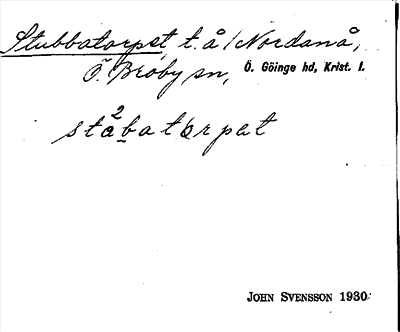 Stubbatorpet, t. å / Nordanå,
Ö. Broby sn, Ö. Göinge hd, Krist. l.
stà²batòrpat
JOHN SVENSSON 1930